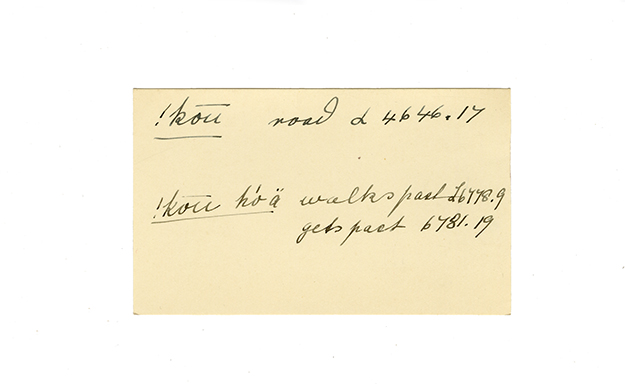 !kou road L 4646.17
!kou hóä walks past L6778.9
gets past 6781.19